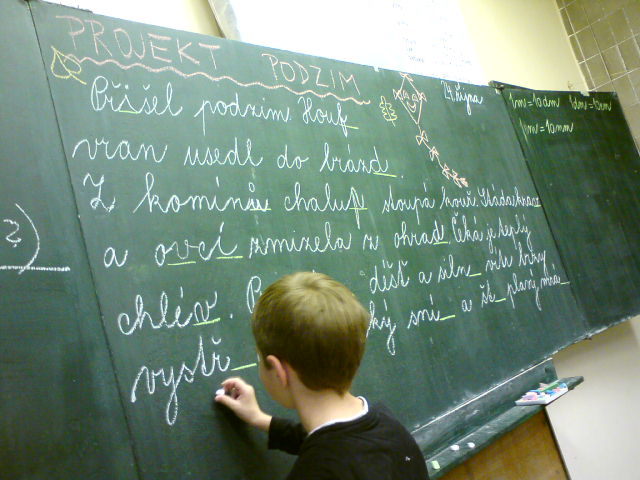 PROJEKT PODZIM
24. října
Přišel podzim. Houf
vran usedl do brázd_.
Z komínů chalup stoupá kouř. Stáda
a ovcí zmizela z ohrad. Čeká je teplý
chlév. déšť a siln_ vítr
ký sní_ a
vystř_
2)
1m = 10dm 1dm = 10cm
1m =